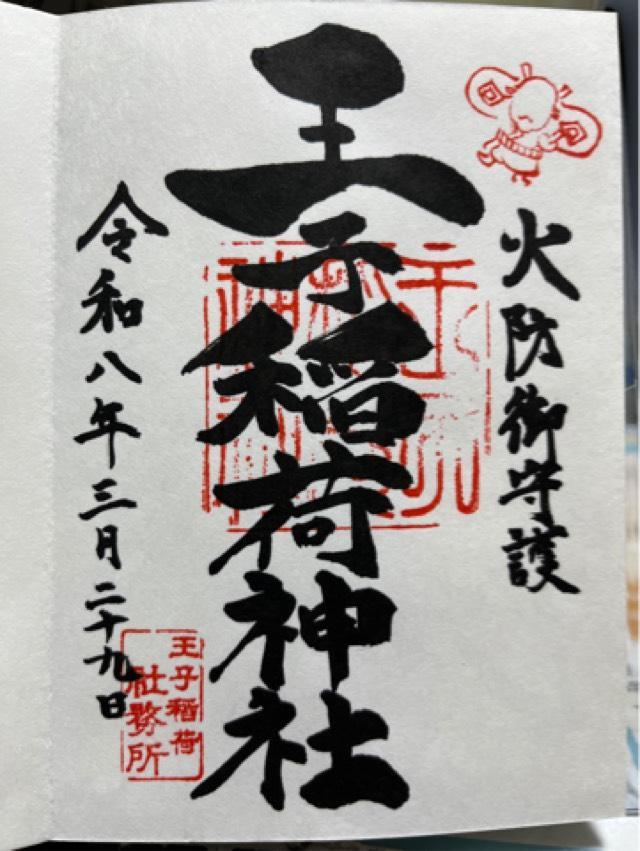 火防御守護
王子稲荷神社
令和八年三月二十九日
王子稲荷
社務所